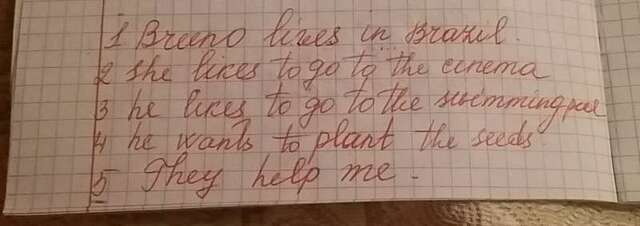 1 Bruno lives in Brazil.
2 she likes to go to the cinema
3 he likes to go to the swimming pool
4 he wants to plant the seeds.
5 They help me.